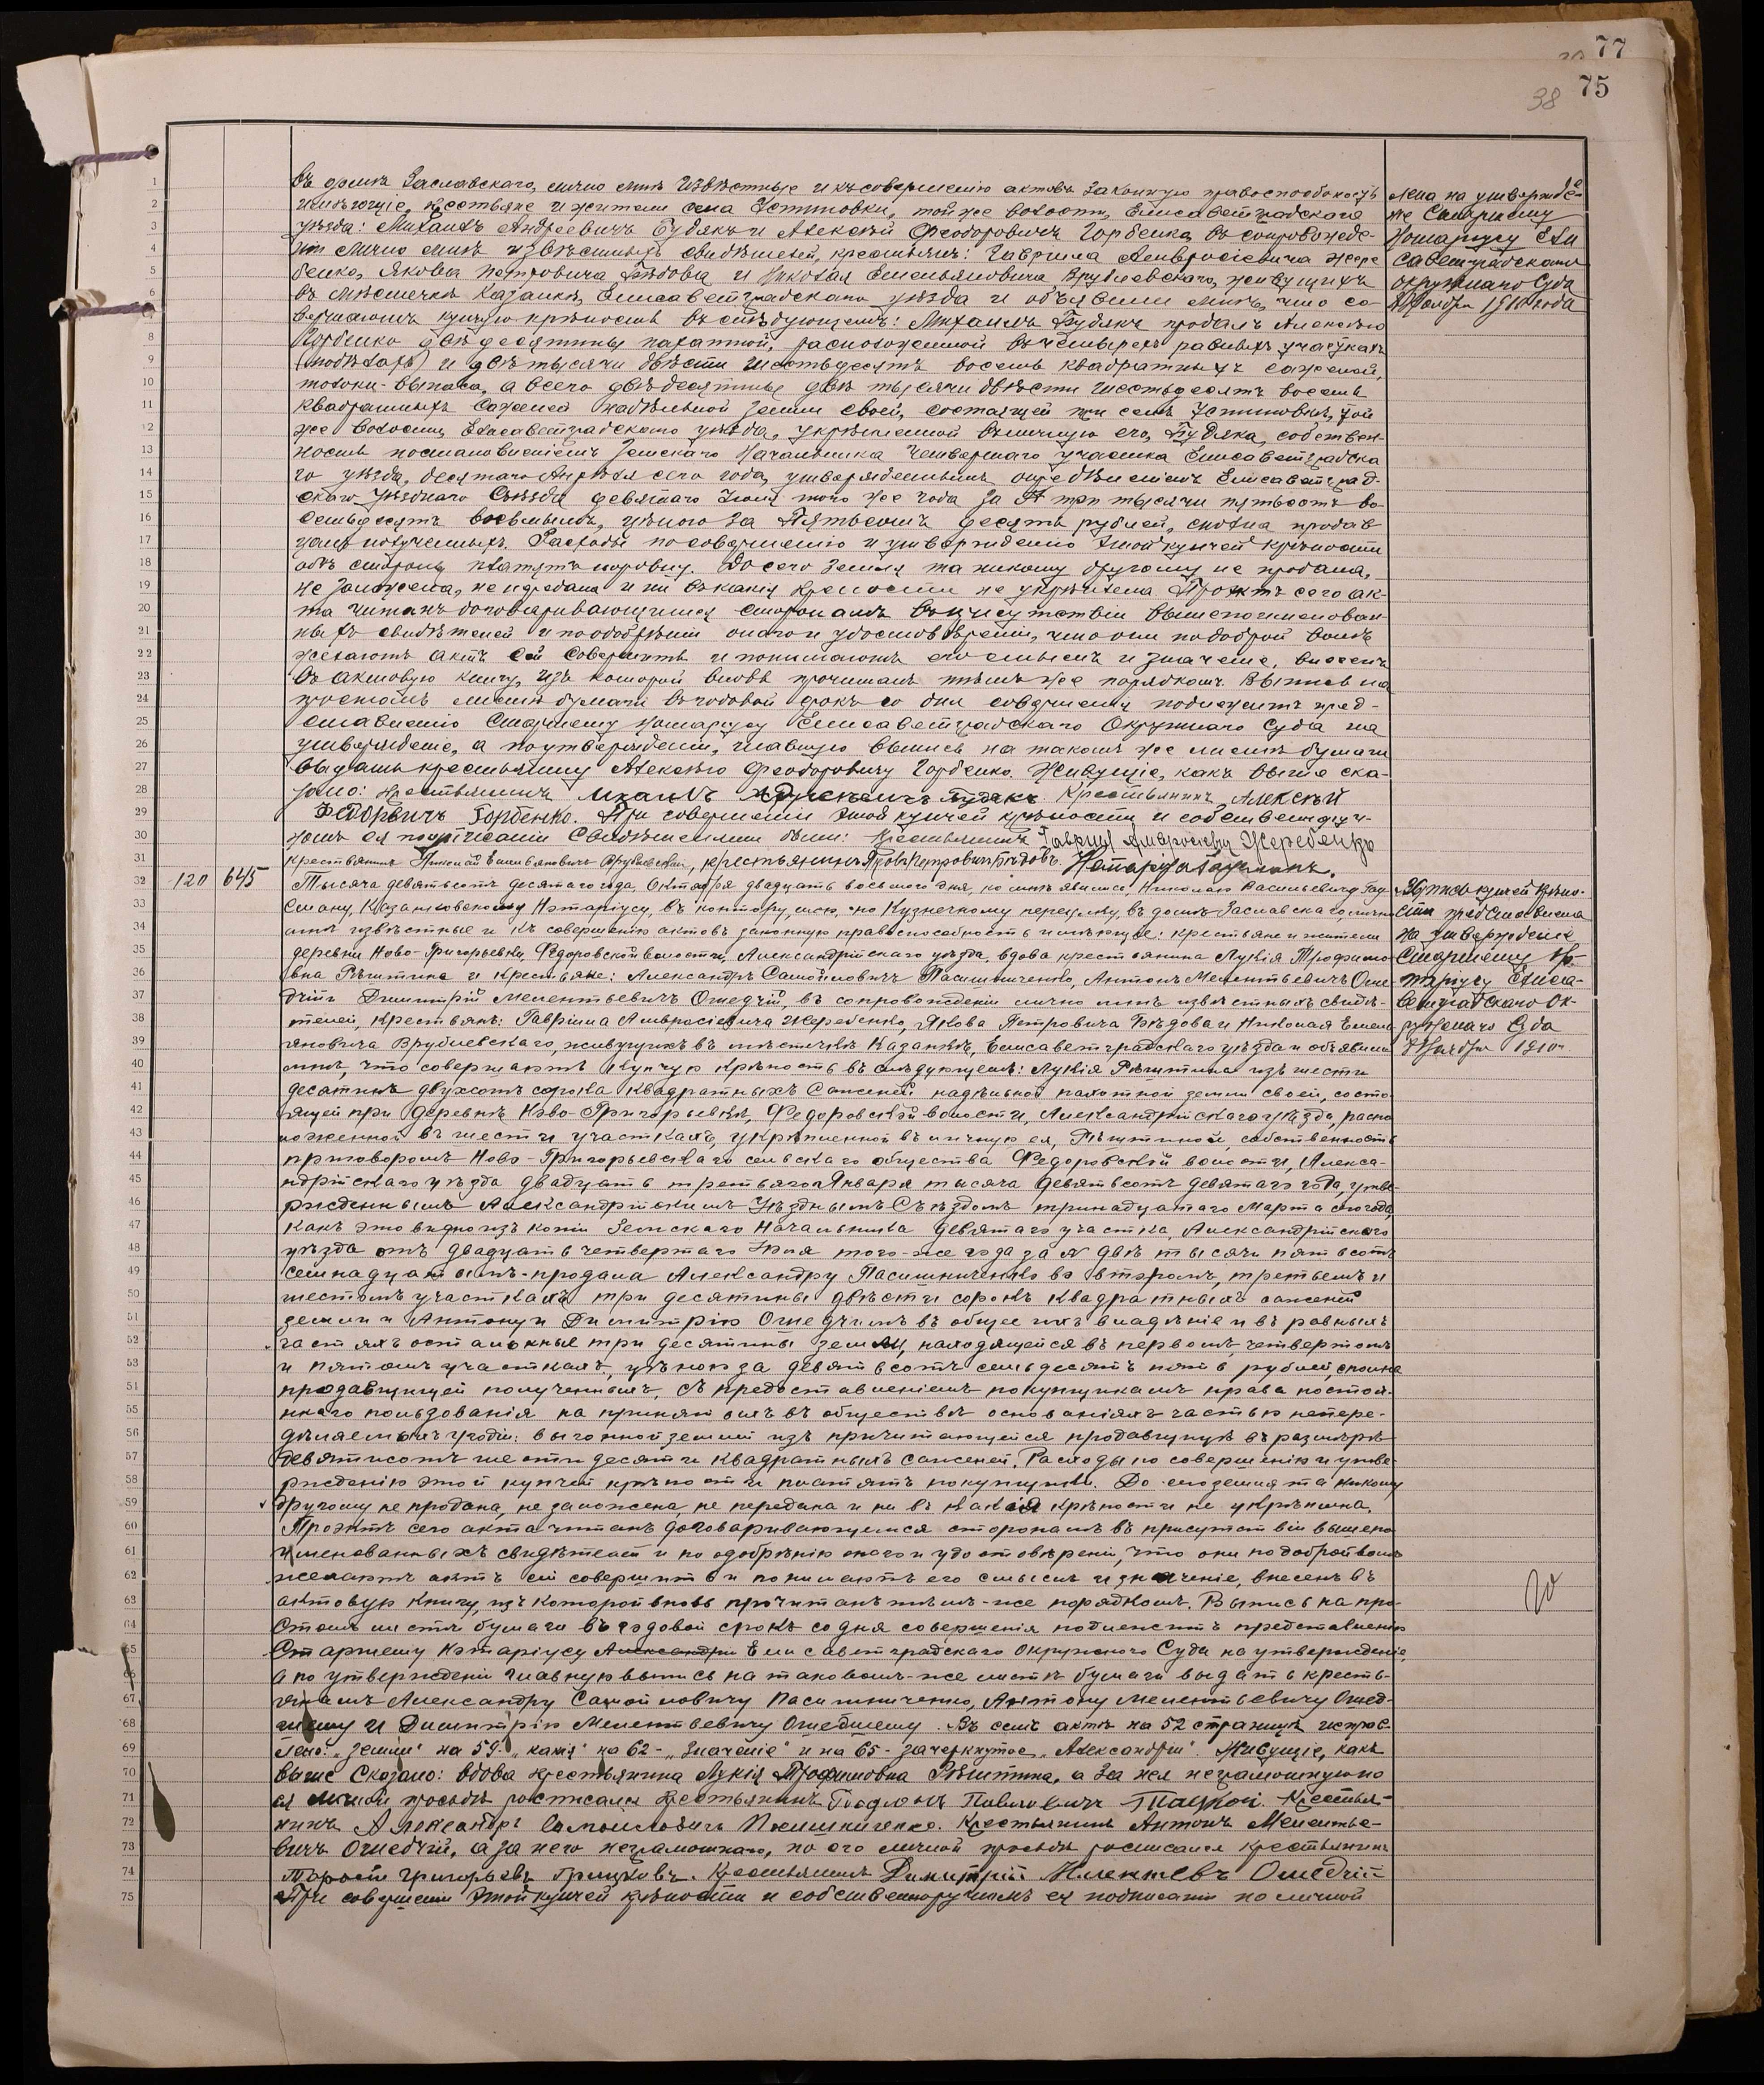 77
38 75
въ домѣ Заславскаго, лично мнѣ извѣстные и къ совершенію актовъ законную правоспособность
имѣющіе, крестьяне и жители села Устиновки, той же волости, Елисаветградскаго
уѣзда: Михаилъ Андреевичъ Будякъ и Алексѣй Феодоровичъ Горбенко, въ сопровожде-
ніи лично мнѣ извѣстныхъ свидѣтелей, крестьянъ: Гавріила Амвросіевича Жере-
бенко, Якова Петровича Бѣдова и Николая Емельяновича Врублевскаго, живущихъ
въ мѣстечкѣ Казанкѣ, Елисаветградскаго уѣзда и объявили мнѣ, что со-
вершаютъ купчую крѣпость въ слѣдующемъ: Михаилъ Будякъ продалъ Алексѣю
Горбенко двѣ десятины пахатной, расположенной въ четырехъ равныхъ участкахъ
и двѣ тысячи двѣсти шестьдесятъ восемь квадратныхъ саженей,
толоки-выпаса, а всего двѣ десятины двѣ тысячи двѣсти шестьдесятъ восемь
квадратныхъ саженей надѣльной земли своей, состоящей при селѣ Устиновкѣ, той
же волости, Елисаветградскаго уѣзда, укрѣпленной въ личную его, Будяка, собствен-
ность постановленіемъ Земскаго Начальника Четвертаго участка Елисаветградска
го уѣзда, десятаго Апрѣля сего года, утвержденнымъ опредѣленіемъ Елисаветград-
скаго Уѣзднаго Съѣзда девятаго Іюля того же года за № три тысячи пятьсотъ во-
семьдесятъ восьмымъ, цѣною за Пятьсотъ десять рублей, сполна продав
цомъ полученныхъ. Расходы по совершенію и утвержденію этой купчей крѣпости
обѣ стороны платятъ поровну. До сего земля та никому другому не продана,
не заложена, не передана и ни въ какія крѣпости не укрѣплена. Проэктъ сего ак-
та читанъ договаривающимся сторонамъ въ присутствіи вышепоименован-
ныхъ свидѣтелей и по одобреніи онаго и удостовѣреніи, что они по доброй волѣ
желаютъ актъ сей совершить и понимаютъ его смыслъ и значеніе, внесенъ
въ актовую книгу, изъ которой вновь прочитанъ тѣмъ же порядкомъ. Выпись на
простомъ листѣ бумаги въ годовой срокъ со дня совершенія подлежитъ пред-
ставленію Старшему Нотаріусу Елисаветградскаго Окружнаго Суда на
утвержденіе, а по утвержденіи, главную выпись на такомъ же листѣ бумаги
выдать крестьянину Алексѣю Феодоровичу Горбенко. Живущіе, какъ выше ска-
зано: крестьянинъ Михаилъ Андреевичъ Будякъ. Крестьянинъ Алексѣй
Федоровичъ Горбенко. При совершеніи этой купчей крѣпости и собственноруч-
номъ ея подписаніи Свидѣтелями были: Крестьянинъ Гавріилъ Амвросіевичъ Жеребенко
крестьянинъ Николай Емельяновичъ Врублевскій, крестьянинъ Яковъ Петровичъ Бѣдовъ. Нотаріусъ Гаусманъ.
120 645 Тысяча девятьсотъ десятаго года, Октября двадцать восьмого дня, ко мнѣ явились, Николаю Васильевичу Гау
сману, Казанковскому Нотаріусу, въ контору, мою, по Кузнечному переулку, въ домѣ Заславскаго, лично
мнѣ извѣстные и къ совершенію актовъ законную правоспособность имѣющіе: крестьяне и жители
деревни Ново-Григорьевки, Федоровской волости, Александрійскаго уѣзда, вдова крестьянина Лукія Трофимо
вна Рѣштина и крестьяне: Александръ Самойловичъ Пасишниченко, Антонъ Мелентьевичъ Оше
дчій и Димитрій Мелентьевичъ Ошедчій, въ сопровожденіи лично мнѣ извѣстныхъ свидѣ-
телей, крестьянъ: Гавріила Амвросіевича Жеребенко, Якова Петровича Бѣдова и Николая Емель
яновича Врублевскаго, живущихъ въ мѣстечкѣ Казанкѣ, Елисаветградскаго уѣзда и объявили
мнѣ, что совершаютъ купчую крѣпость въ слѣдующемъ: Лукія Рѣштина изъ шести
десятинъ двухсотъ сорока квадратныхъ саженей надѣльной пахотной земли своей, состо-
ящей при деревнѣ Ново-Григорьевкѣ, Федоровской волости, Александрійскаго уѣзда, распо
ложенной въ шести участкахъ, укрѣпленной въ личную ея, Рѣштиной, собственность
приговоромъ Ново-Григорьевскаго сельскаго общества Федоровской волости, Алекса-
ндрійскаго уѣзда двадцать третьяго Января тысяча девятьсотъ девятаго года, утве-
ржденнымъ Александрійскимъ Уѣзднымъ Съѣздомъ тринадцатаго Марта сего года,
какъ это видно изъ копіи Земскаго Начальника девятаго участка, Александрійскаго
уѣзда отъ двадцать четвертаго Іюля того-же года за № двѣ тысячи пятьсотъ
семнадцатымъ-продала Александру Пасишниченко во второмъ, третьемъ и
шестомъ участкахъ три десятины двѣсти сорокъ квадратныхъ саженей
земли и Антону и Димитрію Ошедчимъ въ общее ихъ владѣніе и въ равныхъ
частяхъ остальныя три десятины земли, находящейся въ первомъ, четвертомъ
и пятомъ участкахъ, цѣною за девятьсотъ семьдесятъ пять рублей, сполна
продавщицей полученныхъ, съ предоставленіемъ покупщикамъ права постоя-
ннаго пользованія на принятыхъ въ обществѣ основаніяхъ частью непере-
дѣляемыхъ угодій: выгонной земли изъ причитающейся продавщицѣ въ размѣрѣ
девятисотъ шестидесяти квадратныхъ саженей. Расходы по совершенію и утве-
ржденію этой купчей крѣпости платятъ покупщики. До сего земля та никому
другому не продана, не заложена, не передана и ни въ какія крѣпости не укрѣплена.
Проэктъ сего акта читанъ договаривающимся сторонамъ въ присутствіи вышепо
именованныхъ свидѣтелей и по одобренію онаго и удостовѣреніи, что они по доброй волѣ
желаютъ актъ сей совершить и понимаютъ его смыслъ и значеніе, внесенъ въ
актовую книгу, изъ которой вновь прочитанъ тѣмъ-же порядкомъ. Выпись на про-
стомъ листѣ бумаги въ годовой срокъ со дня совершенія подлежитъ представленію
Старшему Нотаріусу Александрій Елисаветградскаго Окружного Суда на утвержденіе,
а по утвержденіи главную выпись на таковомъ-же листѣ бумаги выдать кресть-
янамъ Александру Самойловичу Пасишниченко, Антону Мелентьевичу Ошед-
чему и Димитрію Мелентьевичу Ошедчему. Въ семъ актѣ на 52 страницѣ исправ-
лено: "земли" на 59- "какія" на 62- "значеніе" и на 65- зачеркнутое "Александрій". Живущіе, какъ
выше сказано: вдова крестьянина Лукія Трофимовна Рѣштина, а за нея неграмотную по
ея личной просьбѣ росписался крестьянинъ Павловичъ Крестья-
нинъ Александръ Самойловичъ Пасишниченко. Крестьянинъ Антонъ Мелентье-
вичъ Ошедчій, а за него неграмотнаго, по его личной просьбѣ росписался крестьянинъ
Григорьевъ Крестьянинъ Димитрій Милентевъ Ошедчій
При совершеніи этой купчей крѣпости и собственноручномъ ея подписаніи по личной
лена на утвержде-
ніе Старшему
Нотаріусу Ели
саветградскаго
Окружнаго Суда
Ноября 1910 года
Выпись купчей крѣпо-
сти представлена
на утвержденіе
Старшему Но-
таріусу Елиса-
ветградскаго Ок-
ружнаго Суда
Ноября 1910 г.